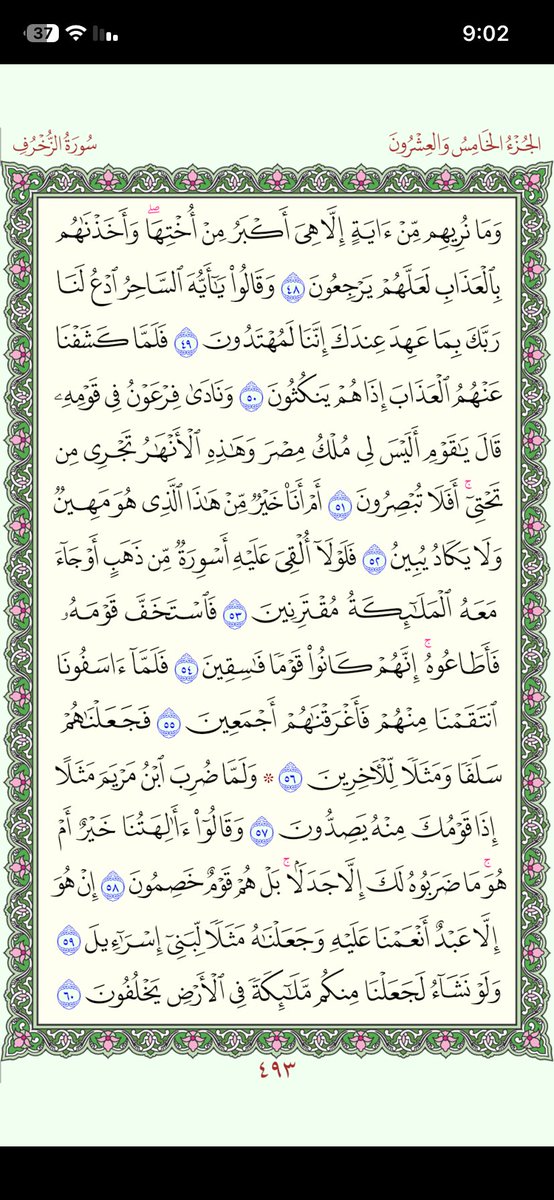 37 9:02
الجُزْءُ الخَامِسُ وَالعِشْرُونَ سُورَةُ الزُّخْرُفِ
وَمَا نُرِيهِم مِّنْ ءَايَةٍ إِلَّا هِىَ أَكْبَرُ مِنْ أُخْتِهَاۖ وَأَخَذْنَٰهُم
بِٱلْعَذَابِ لَعَلَّهُمْ يَرْجِعُونَ ٤٨ وَقَالُوا۟ يَٰٓأَيُّهَ ٱلسَّاحِرُ ٱدْعُ لَنَا
رَبَّكَ بِمَا عَهِدَ عِندَكَ إِنَّنَا لَمُهْتَدُونَ ٤٩ فَلَمَّا كَشَفْنَا
عَنْهُمُ ٱلْعَذَابَ إِذَا هُمْ يَنكُثُونَ ٥٠ وَنَادَىٰ فِرْعَوْنُ فِى قَوْمِهِۦ
قَالَ يَٰقَوْمِ أَلَيْسَ لِى مُلْكُ مِصْرَ وَهَٰذِهِ ٱلْأَنْهَٰرُ تَجْرِى مِن
تَحْتِىٓۚ أَفَلَا تُبْصِرُونَ ٥١ أَمْ أَنَا۠ خَيْرٌ مِّنْ هَٰذَا ٱلَّذِى هُوَ مَهِينٌ
وَلَا يَكَادُ يُبِينُ ٥٢ فَلَوْلَآ أُلْقِىَ عَلَيْهِ أَسْوِرَةٌ مِّن ذَهَبٍ أَوْ جَآءَ
مَعَهُ ٱلْمَلَٰٓئِكَةُ مُقْتَرِنِينَ ٥٣ فَٱسْتَخَفَّ قَوْمَهُۥ
فَأَطَاعُوهُۚ إِنَّهُمْ كَانُوا۟ قَوْمًا فَٰسِقِينَ ٥٤ فَلَمَّآ ءَاسَفُونَا
ٱنتَقَمْنَا مِنْهُمْ فَأَغْرَقْنَٰهُمْ أَجْمَعِينَ ٥٥ فَجَعَلْنَٰهُمْ
سَلَفًا وَمَثَلًا لِّلْءَاخِرِينَ ٥٦ ۞ وَلَمَّا ضُرِبَ ٱبْنُ مَرْيَمَ مَثَلًا
إِذَا قَوْمُكَ مِنْهُ يَصِدُّونَ ٥٧ وَقَالُوٓا۟ ءَأَٰلِهَتُنَا خَيْرٌ أَمْ
هُوَۚ مَا ضَرَبُوهُ لَكَ إِلَّا جَدَلَۢاۚ بَلْ هُمْ قَوْمٌ خَصِمُونَ ٥٨ إِنْ هُوَ
إِلَّا عَبْدٌ أَنْعَمْنَا عَلَيْهِ وَجَعَلْنَٰهُ مَثَلًا لِّبَنِىٓ إِسْرَٰٓءِيلَ ٥٩
وَلَوْ نَشَآءُ لَجَعَلْنَا مِنكُم مَّلَٰٓئِكَةً فِى ٱلْأَرْضِ يَخْلُفُونَ ٦٠
٤٩٣